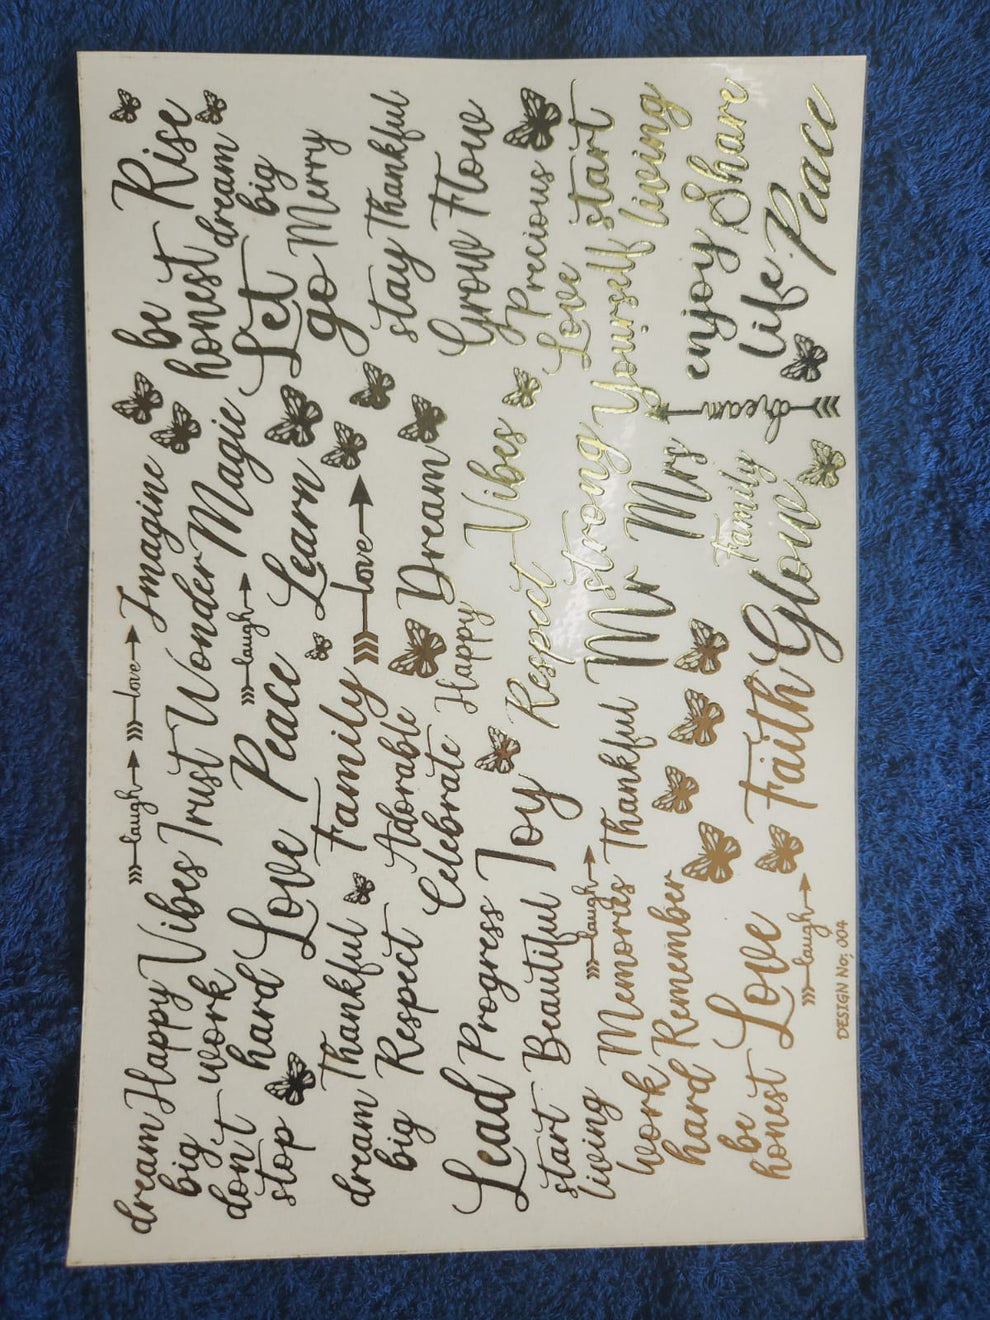 dream Happy laugh love Imagine be Rise
big Vibes Trust Wonder honest dream
don't work Magic big
stop hard laugh Let
Love Peace Learn go Merry
dream Thankful Family love stay Thankful
big Respect Adorable Dream
Celebrate Happy Grow Flow
Lead Progress Joy Vibes Precious
start Beautiful Respect Love start
living laugh strong Yourself living
Memories Thankful Mr Mrs
work Remember enjoy Share
hard Family dream
be Love Faith Glow Life Peace
honest laugh
DESIGN No; 004